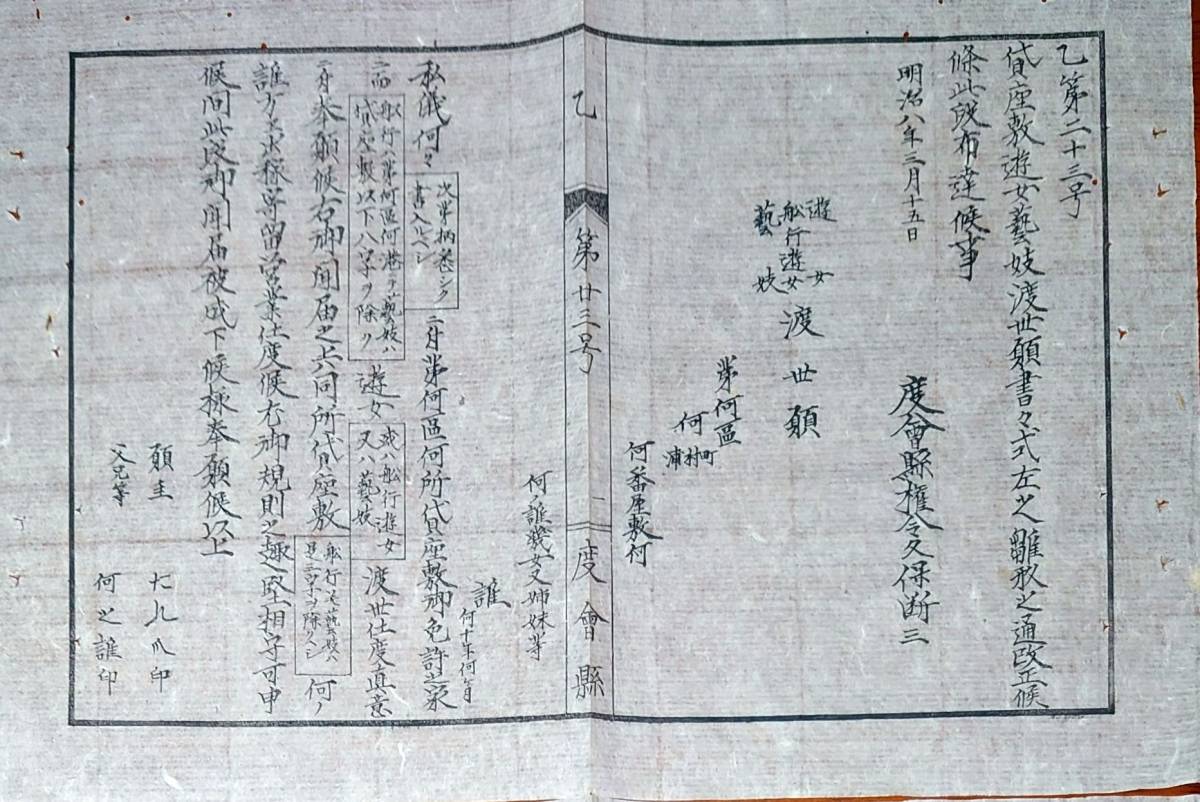 乙第二十三号
貸座敷遊女藝妓渡世願書々式左之雛形之通改正候
條此段布達候事
明治八年三月十五日
度會縣権令久保断三
遊女
舩行遊女
藝妓
渡世願
第何區
何
町村浦
何番屋敷何
何誰幾女又姉妹等
誰
何十年何ヶ月
乙 第廿三号 度會縣
私儀何々
次第柄委シク
書入ルベシ
ニ付第何區何所貸座敷御免許之家
ニ而
舩行ハ第何區何港ヲ藝妓ハ
貸座敷以下八字ヲ除ク
遊女
或ハ舩行遊女
又ハ藝妓
渡世仕度真意
ニ付奉願候右御聞届之上共同所貸座敷
舩行并藝妓ハ
是二字ヲ除クベシ
何ノ
誰方江出稼寄留営業仕度候尤御規則之趣堅相守可申
候間此段御聞届被成下候様奉願候以上
願主
父兄等
何之誰印